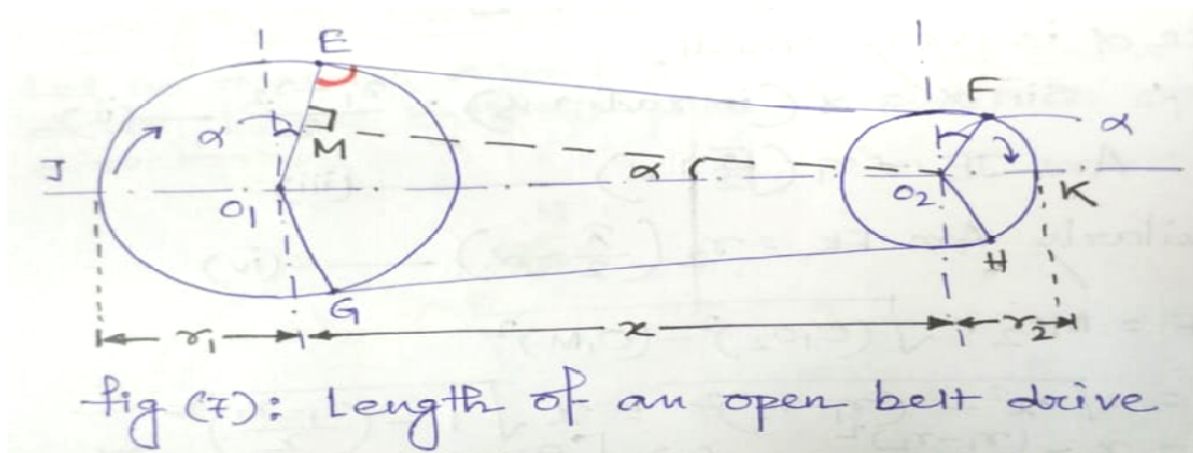 E
F
α
α
M
α
J
O1
O2
K
H
G
r1
x
r2
fig (7): Length of an open belt drive